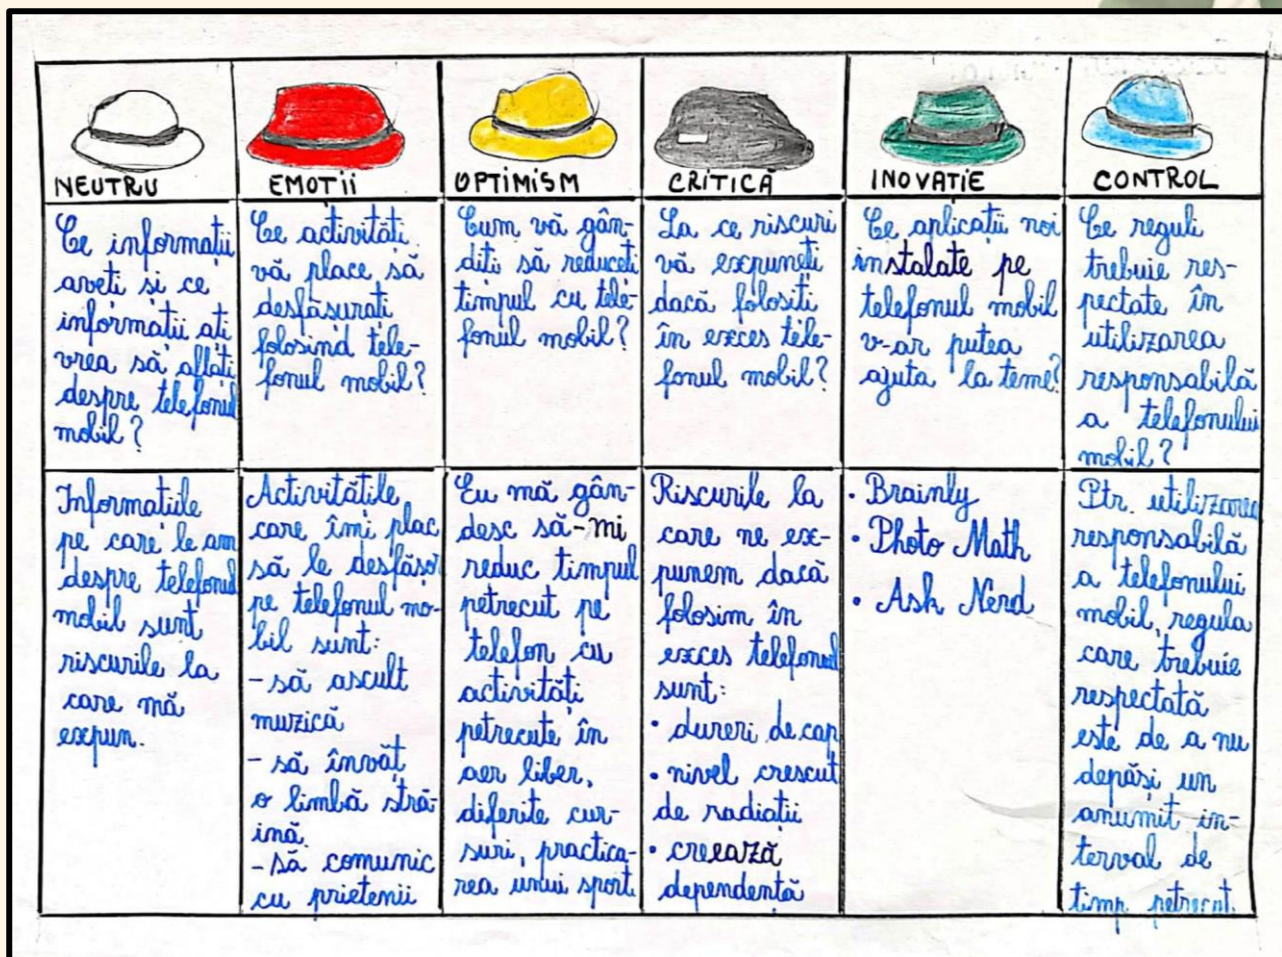 NEUTRU
EMOTII
OPTIMISM
CRITICĂ
INOVATIE
CONTROL
Ce informații
aveti si ce
informații ati
vrea să aflati
despre telefonul
mobil?
Ce activităti
vă place să
desfăsurati
folosind tele-
fonul mobil?
Cum vă gân-
diti să reduceti
timpul cu tele-
fonul mobil?
La ce riscuri
vă expuneti
dacă folositi
în exces tele-
fonul mobil?
Ce aplicatii noi
instalate pe
telefonul mobil
v-ar putea
ajuta la teme?
Ce reguli
trebuie res-
pectate în
utilizarea
responsabilă
a telefonului
mobil?
Informatiile
pe care le am
despre telefonul
mobil sunt
riscurile la
care mă
expun.
Activitătile
care îmi plac
să le desfăsor
pe telefonul mo-
bil sunt:
- să ascult
muzică
- să învăt
o limbă stră-
ină
- să comunic
cu prietenii
Eu mă gân-
desc să-mi
reduc timpul
petrecut pe
telefon cu
activităti
petrecute în
aer liber,
diferite cur-
suri, practica-
rea unui sport
Riscurile la
care ne ex-
punem dacă
folosim în
exces telefonul
sunt:
• dureri de cap
• nivel crescut
de radiatii
• creează
dependentă
• Brainly
• Photo Math
• Ask Nerd
Ptr. utilizarea
responsabilă
a telefonului
mobil, regula
care trebuie
respectată
este de a nu
depăsi un
anumit in-
terval de
timp petrecut.